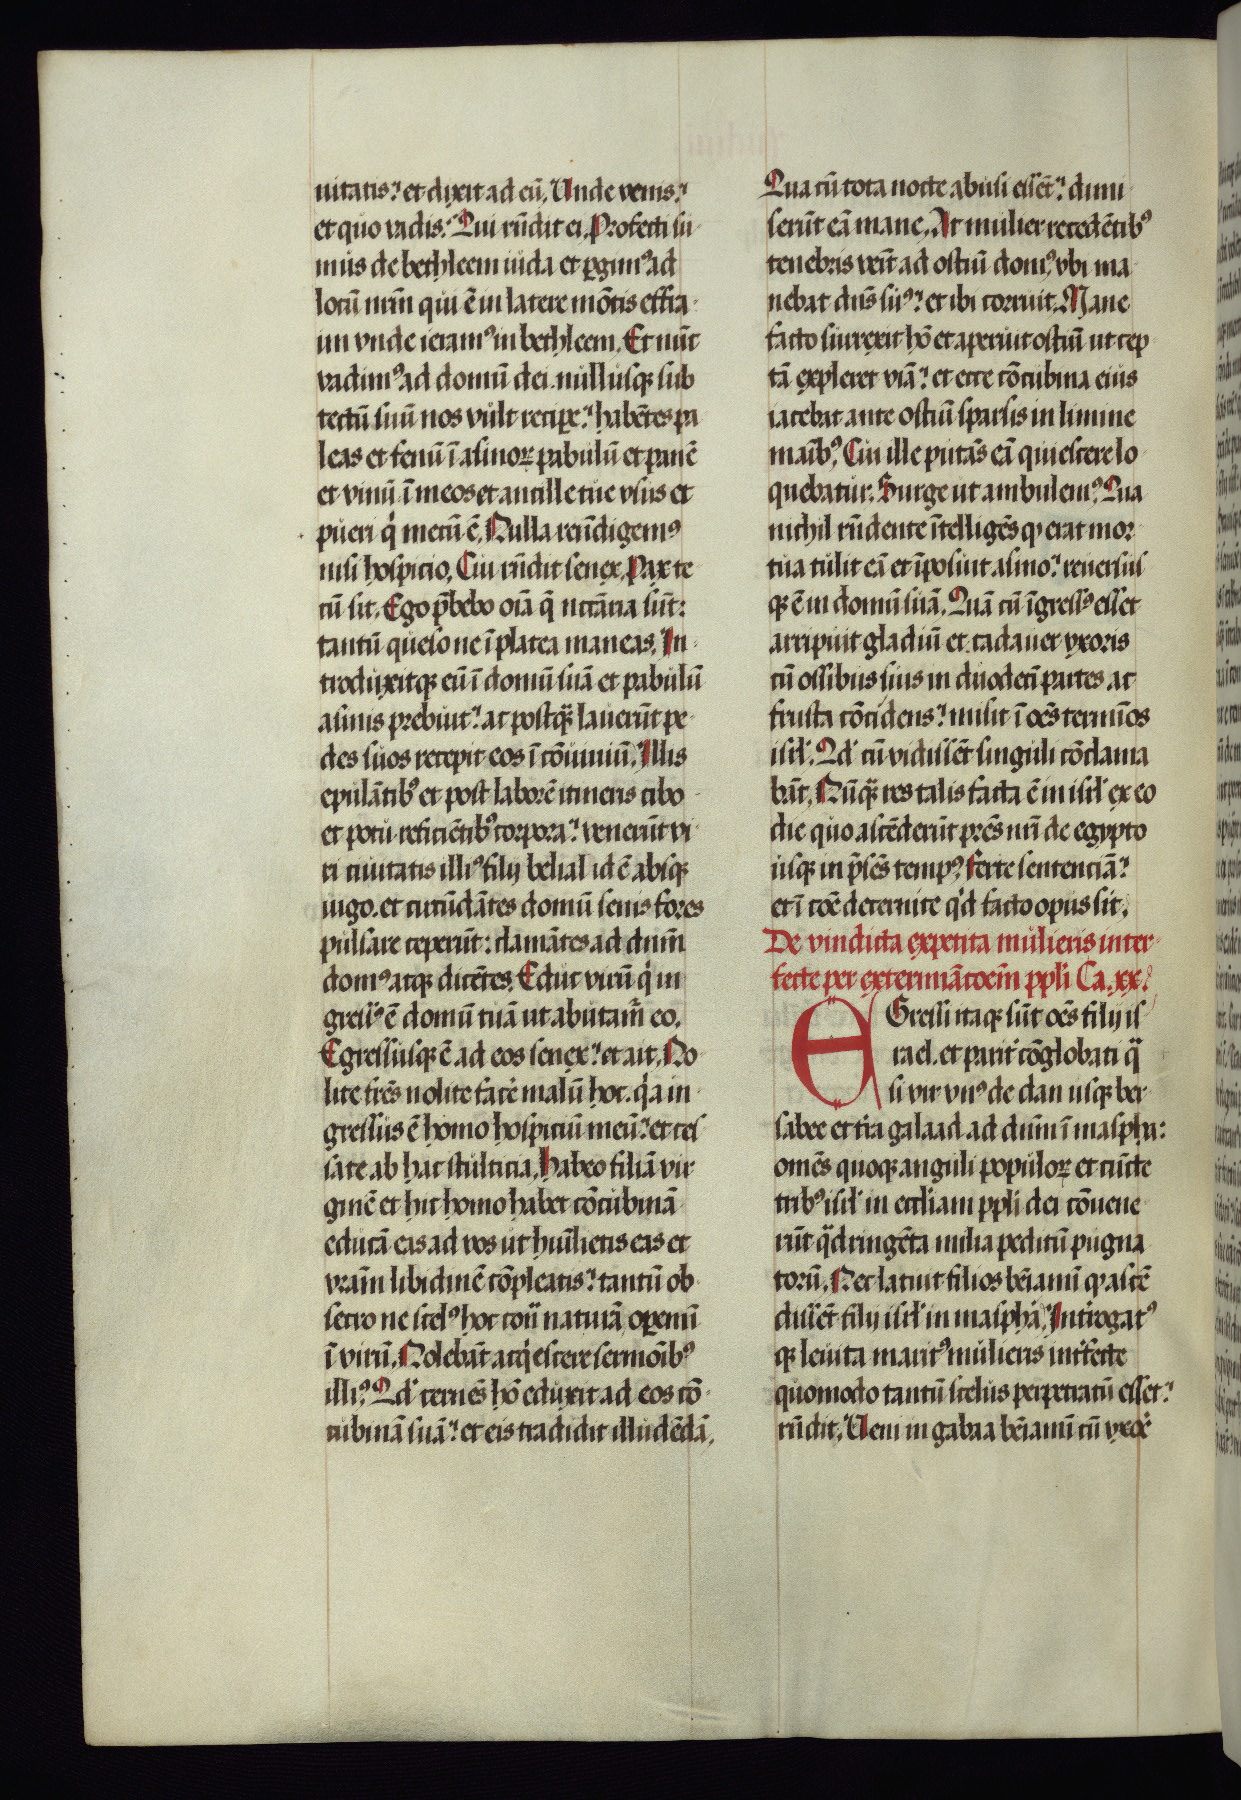 uitatis? et dixit ad eū. Unde venis?
et quo vadis? Qui rñdit ei. Profecti su
mus de bethleem iuda et ꝑgimꝰ ad
locū nr̄m qui ē in latere mōtis effra
im vnde ieramꝰ in bethleem. Et nūc
vadimꝰ ad domū dei nullusqꝫ sub
tectū suū nos vult reciꝑe? habētes pa
leas et fenū ī asinoꝝ pabulū et panē
et vinū ī meos et ancille tue vsus et
pueri q̇ mecū ē. Nulla re īdigemꝰ
nisi hospicio. Cui rñdit senex. Pax te
cū sit. Ego p̄bebo oīa q̄ nc̄cāria sūt:
tantū queso ne ī platea maneas. In
troduxitqꝫ eū ī domū suā et pabulū
asinis prebuit? at postqᷓ lauerūt pe
des suos recepit eos ī cōuiuiū. Illis
epulātibꝰ et post laborē itineris cibo
et potu reficiētibꝰ corpora? venerūt vi
ri ciuitatis illiꝰ filij belial id ē absqꝫ
iugo. et circūdātes domū senis fores
pulsare ceperūt: clamātes ad dn̄m
domꝰ atqꝫ dicētes. Educ virū q̇ in
gressꝰ ē domū tuā ut abutam̄ eo.
Egressusqꝫ ē ad eos senex? et ait. No
lite fr̄es nolite facē malū hoc. q̇a in
gressus ē homo hospiciū meū? et ces
sate ab hac stulticia. Habeo filiā vir
ginē et hic homo habet cōcubinā
educā eas ad vos ut humilietis eas et
vr̄am libidinē cōpleatis? tantū ob
secro ne scelꝰ hoc cont̄ naturā oꝑemī
ī virū. Nolebāt acq̇escere sermōibꝰ
illiꝰ? Qd' cernēs hō eduxit ad eos cō
cubinā suā? et eis tradidit illudēdā.
Qua cū tota nocte abusi essēt? dimi
serūt eā mane. At mulier recedētibꝰ
tenebris venit ad ostiū domꝰ vbi ma
nebat dn̄s suꝰ? et ibi corruit. Mane
facto surrexit hō et aperuit ostiū ut cep
tā expleret viā? et ecce cōcubina eius
iacebat ante ostiū sparsis in limine
maībꝰ. Cui ille putās eā quiescere lo
quebatur. Surge ut ambulemꝰ. Qua
nichil rñdente ītelligēs qꝫ erat mor
tua tulit eā et īposuit asino? reuersus
qꝫ ē in domū suā. Quā cū īgressꝰ esset
arripuit gladiū et cadauer vxoris
cū ossibus suis in duodecī partes ac
frusta cōcidens? misit ī oēs termīos
isrl'. Qd' cū vidissēt singuli cōclama
bāt. Nūqᷓ res talis facta ē in isrl' ex eo
die quo ascēderūt pr̄es nr̄i de egypto
usqꝫ in p̄sēs tempꝰ? ferte sentenciā?
et ī cōe decernite q̇d facto opus sit.
De vindicta expetita mulieris inter
fecte per exterminac̄oem ppl'i Ca. xx.
EGressi itaqꝫ sūt oēs filij is
rael. et parit' cōglobati qᷓ
si vir vnꝰ de dan usqꝫ ber
sabee et tr̄a galaad ad dn̄m ī maspha:
omēs quoqꝫ anguli populoꝝ et cūcte
tribꝰ isrl' in eccl'iam ppl'i dei cōuene
rūt qᷓdringēta milia peditū pugna
torū. Nec latuit filios beīamī qꝫ ascē
dissēt filij isrl' in maspha. Int̄rogatꝰ
qꝫ leuita maritꝰ mulieris int̄fecte
quomodo tantū scelus perpetratū esset?
rñdit. Veni in gabaa beīamī cū vxoē